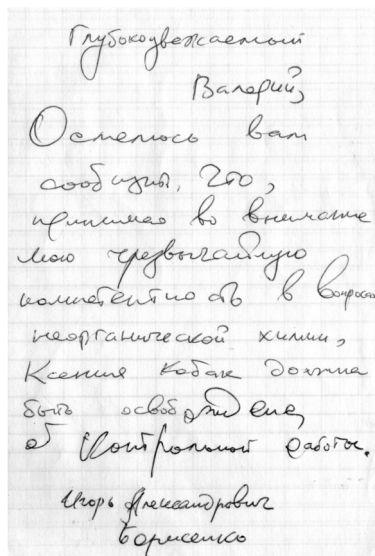 Глубокоуважаемый
Валерий,
Осмелюсь вам
сообщить, что,
принимая во внимание
мою чрезвычайную
компетентность в вопросах
неорганической химии,
Ксения Кобак должна
быть освобождена
от контрольной работы.
Игорь Александрович
Борисенко